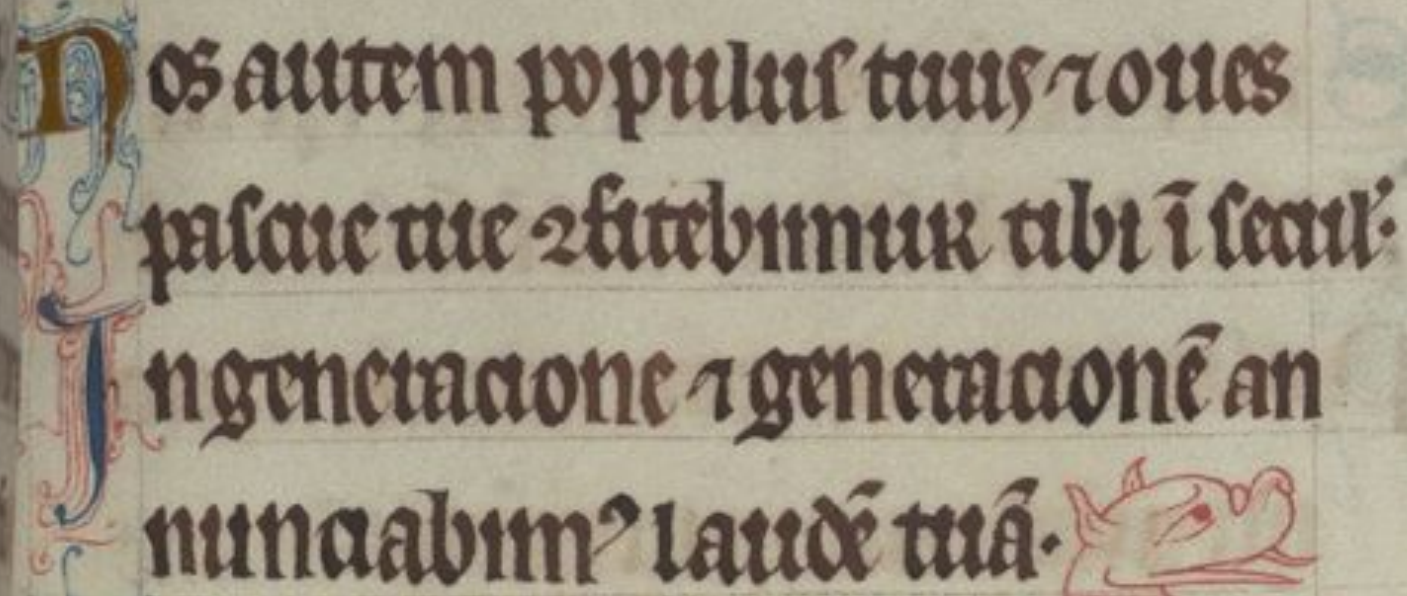 Nos autem populuſ tuus ⁊ oues
paſcue tue ꝯfitebimur tibi ī ſecul᷒·
In generacione ⁊ generacionē an
nunciabimꝰ laudē tuā·